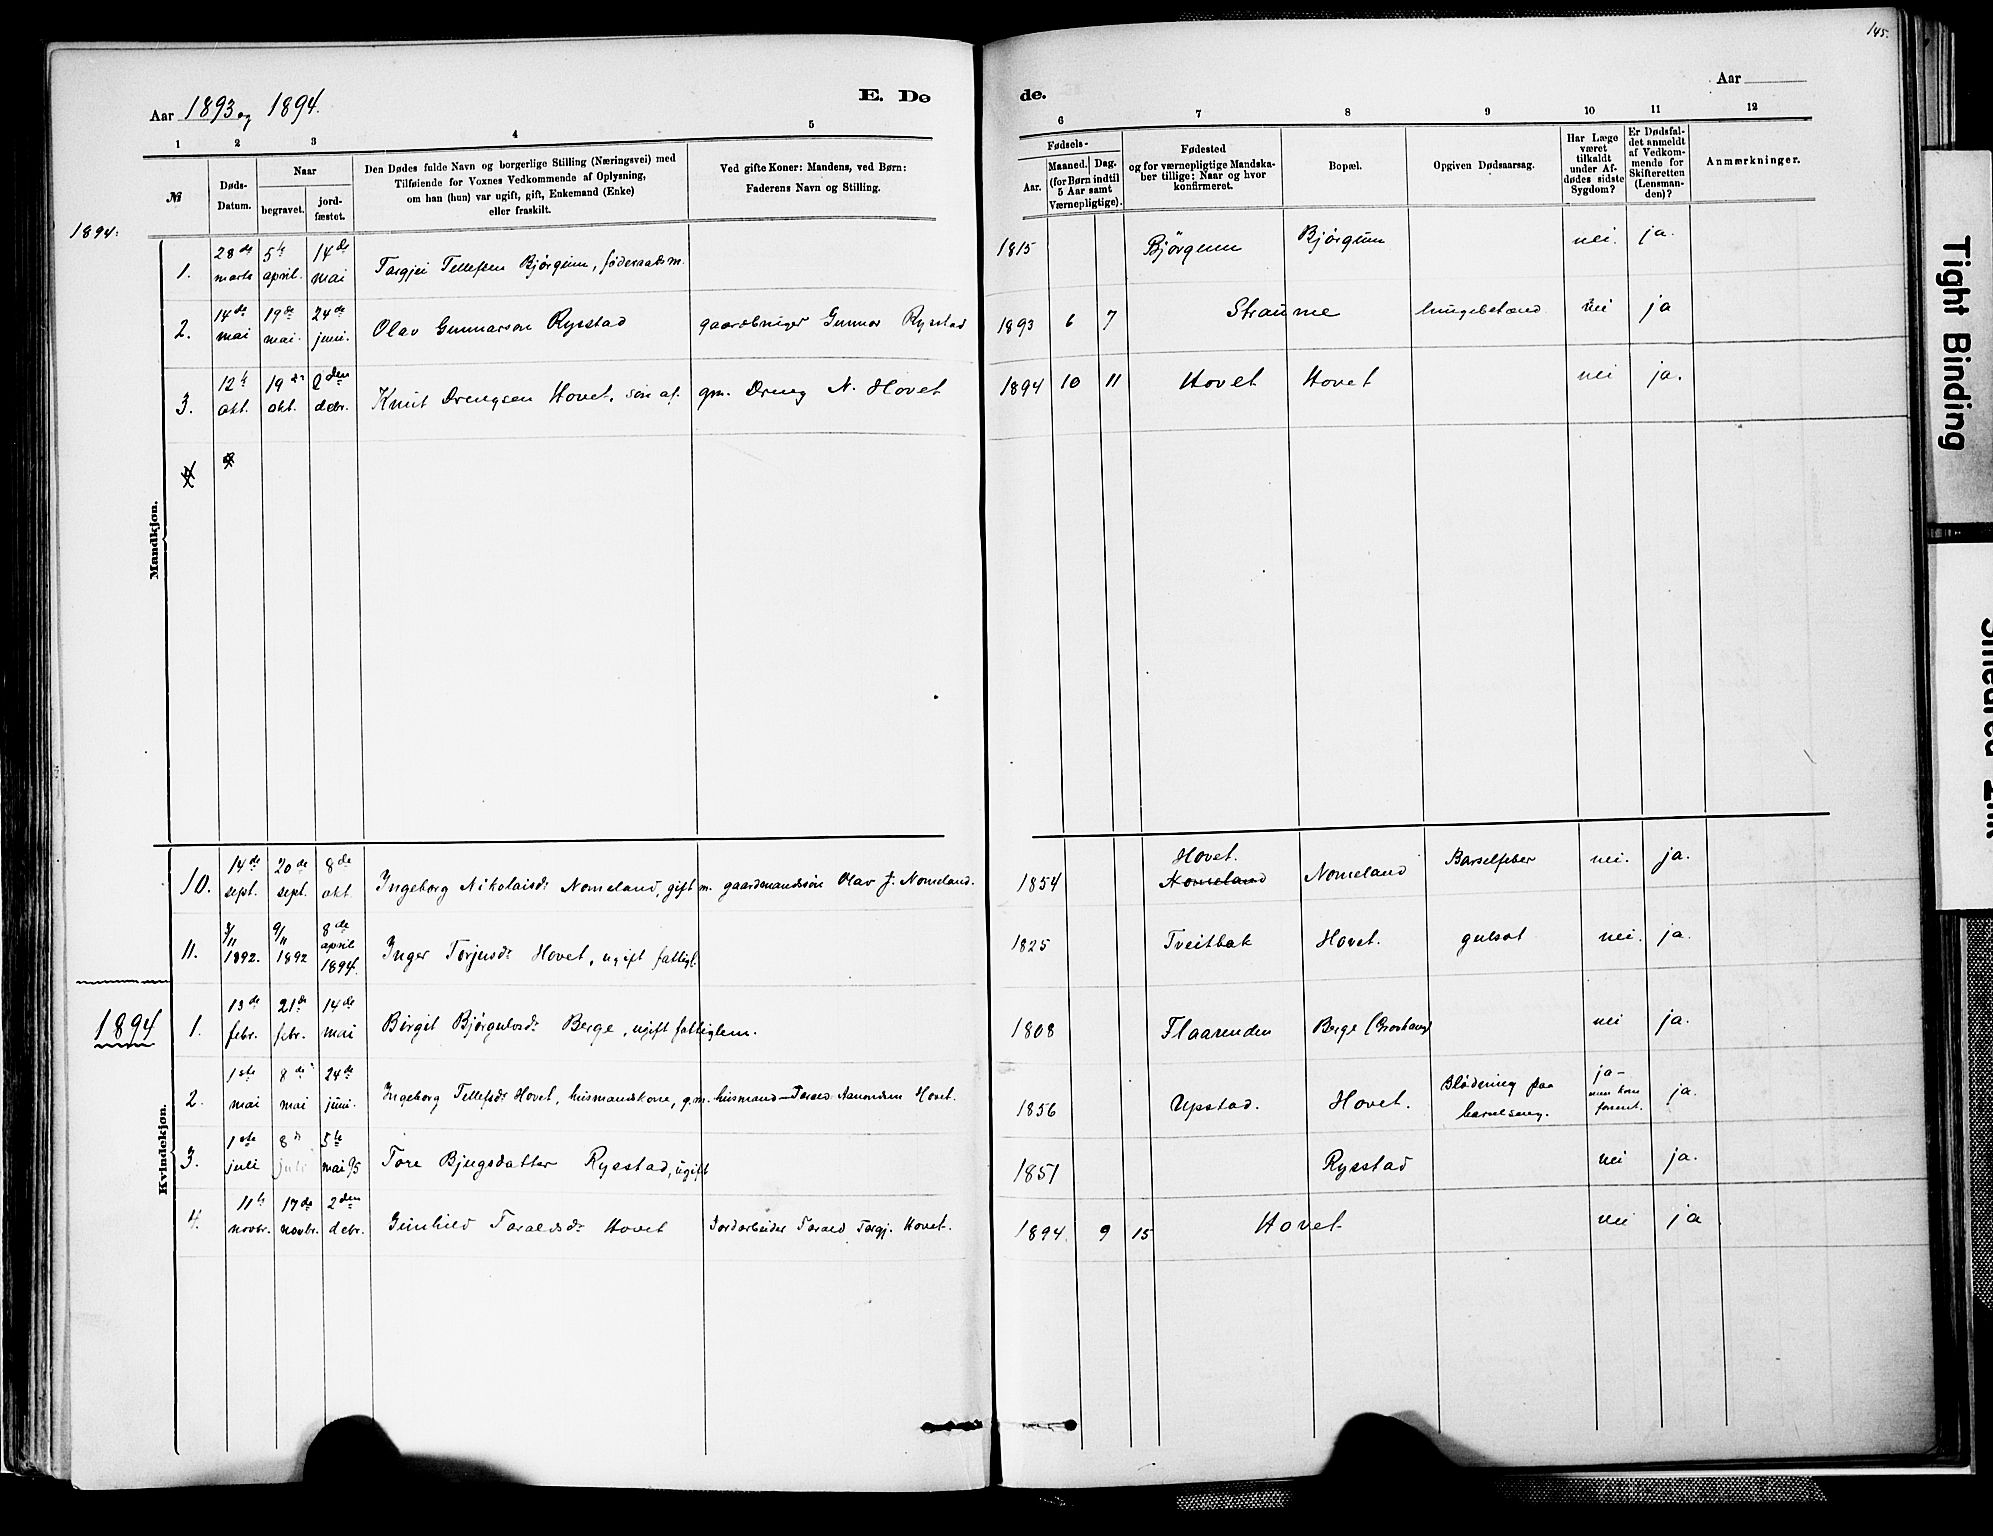 145.
Aar 1893 og 1894.
E. Dø
de.
Aar
1 2 3 4 5 6 7 8 9 10 11 12
№
Døds-Datum.
Naar
begravet.
jord-fæstet.
Den Dødes fulde Navn og borgerlige Stilling (Næringsvei) med
Tilføiende for Voxnes Vedkommende af Oplysning,
om han (hun) var ugift, gift, Enkemand (Enke)
eller fraskilt.
Ved gifte Koner: Mandens, ved Børn:
Faderens Navn og Stilling.
Fødsels-
Aar.
Maaned. Dag.
(for Børn indtil
5 Aar samt
Værnepligtige).
Fødested
og for værnepligtige Mandska-
ber tillige: Naar og hvor
konfirmeret.
Bopæl.
Opgiven Dødsaarsag.
Har Læge
været
tilkaldt
under Af-
dødes sidste
Sygdom?
Er Dødsfal-
det anmeldt
af Vedkom-
mende for
Skifteretten
(Lensman-
den)?
Anmærkninger.
1894.
Mandkjøn.
1. 28de marts 5te april. 14de mai Torgjei Tellefsen Bjørgum, føderaadsm. 1815 Bjørgum Bjørgum nei. ja.
2. 14de mai 19de mai. 24de juni. Olav Gunnarson Rysstad gaardbruger Gunnar Rysstad 1893 6 7 Straume lungebetænd nei ja
3. 12te okt. 19de okt. 2den debr. Knut Drengsen Hovet, søn af. gm. Dreng N. Hovet 1894 10 11 Hovet Hovet nei ja.
4
Kvindekjøn.
10. 14de sept. 20de sept. 8de okt. Ingeborg Nikolaisdr Nomeland, gift m. gaardmandssøn Olav J. Nomeland. 1854 Hovet. Nomeland Nomeland Barselfeber nei. ja.
11. 3/11 1892. 9/11 1892 8de april 1894. Inger Torjusdr Hovet, ugift fattigl. 1825 Tveitbak Hovet. gulsot nei. ja.
1894
1. 13de febr. 21de febr. 14de mai Birgit Bjørgulvsdr Berge, ugift fattiglem. 1808 Flaarenden Berge nei ja.
2. 1ste mai 8de mai 24de juni. Ingeborg Tellefsdr Hovet, husmandskone, g.m. husmand Tarald Aanondsen Hovet. 1856 Upstad. Hovet. Blødning paa barselseng. ja - men kom forsent. ja.
3. 1ste juli 8de juli 5te mai 95 Tore Bjugsdatter Rysstad, ugift 1851 Rysstad nei ja.
4. 11te novbr. 17de novbr. 2den debr. Gunhild Taraldsdr Hovet Jordarbeider Tarald Torgj. Hovet. 1894. 9 15 Hovet nei ja
Tight Binding